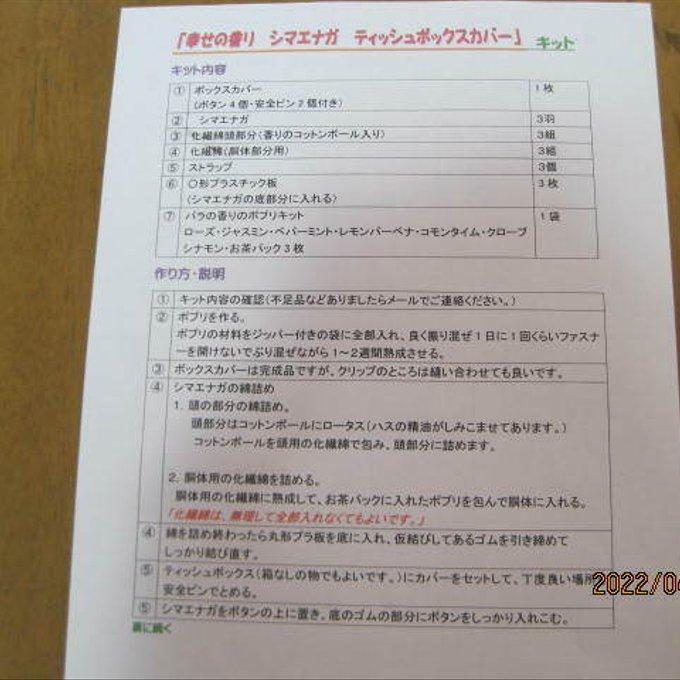 「幸せの香り　シマエナガ　ティッシュボックスカバー」　キット
キット内容
① ボックスカバー 1枚
（ボタン4個・安全ピン2個付き）
② シマエナガ 3羽
③ 化繊綿頭部分（香りのコットンボール入り） 3組
④ 化繊綿（胴体部分用） 3組
⑤ ストラップ 3個
⑥ 〇形プラスチック板 3枚
（シマエナガの底部分に入れる）
⑦ バラの香りのポプリキット 1袋
ローズ・ジャスミン・ペパーミント・レモンバーベナ・コモンタイム・クローブ
シナモン・お茶パック3枚
作り方・説明
① キット内容の確認（不足品などありましたらメールでご連絡ください。）
② ポプリを作る。
ポプリの材料をジッパー付きの袋に全部入れ、良く振り混ぜ1日に1回くらいファスナ
ーを開けないでぶり混ぜながら1～2週間熟成させる。
③ ボックスカバーは完成品ですが、クリップのところは縫い合わせても良いです。
④ シマエナガの綿詰め
1．頭の部分の綿詰め。
頭部分はコットンボールにロータス（ハスの精油がしみこませてあります。）
コットンボールを頭用の化繊綿で包み、頭部分に詰めます。
2．胴体用の化繊綿を詰める。
胴体用の化繊綿に熟成して、お茶パックに入れたポプリを包んで胴体に入れる。
「化繊綿は、無理して全部入れなくてもよいです。」
④ 綿を詰め終わったら丸形プラ板を底に入れ、仮結びしてあるゴムを引き締めて
しっかり結び直す。
⑤ ティッシュボックス（箱なしの物でもよいです。）にカバーをセットして、丁度良い場所
安全ピンでとめる。
⑤ シマエナガをボタンの上に置き、底のゴムの部分にボタンをしっかり入れこむ。
裏に続く
2022/0